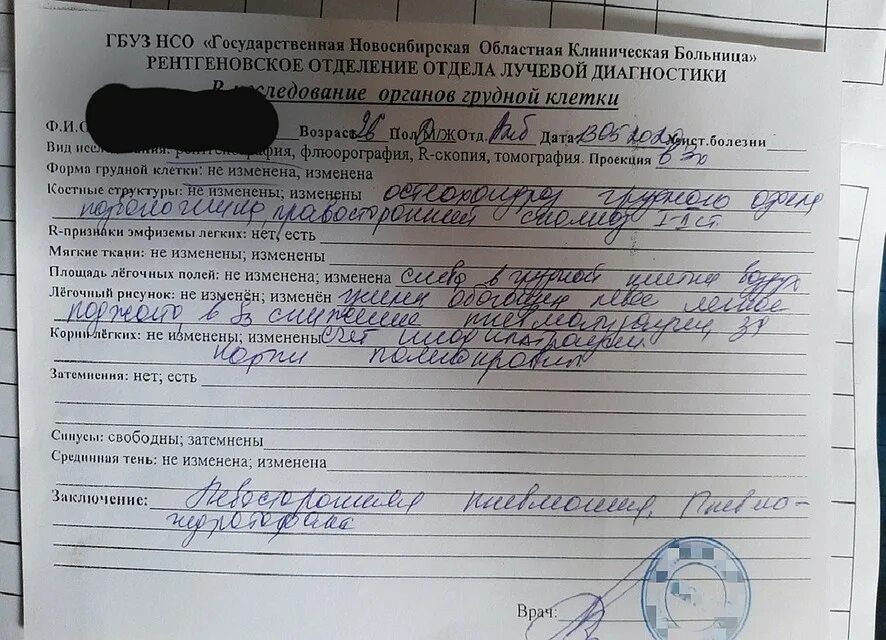 ГБУЗ НСО «Государственная Новосибирская Областная Клиническая Больница»
РЕНТГЕНОВСКОЕ ОТДЕЛЕНИЕ ОТДЕЛА ЛУЧЕВОЙ ДИАГНОСТИКИ
органов грудной клетки
Ф.И.О Возраст 26 Пол М/Ж Отд. Дата 13 05 2020 ист.болезни
Вид исследования: рентгенография, флюорография, R-скопия, томография. Проекция
Форма грудной клетки: не изменена, изменена
Костные структуры: не изменены; изменены остеохондроз грудного отдела
правосторонний сколиоз I-II ст
R-признаки эмфиземы легких: нет, есть
Мягкие ткани: не изменены; изменены
Площадь лёгочных полей: не изменена; изменена слева в грудной клетке воздух
Лёгочный рисунок: не изменён; изменён усилен обогащен левое легкое
поджато в
Корни лёгких: не изменены; изменены счет инфильтрации
корни полнокровны
Затемнения: нет; есть
Синусы: свободны; затемнены
Срединная тень: не изменена; изменена
Заключение: Левосторонняя пневмония. Пневмо-
гидроторакс
Врач: